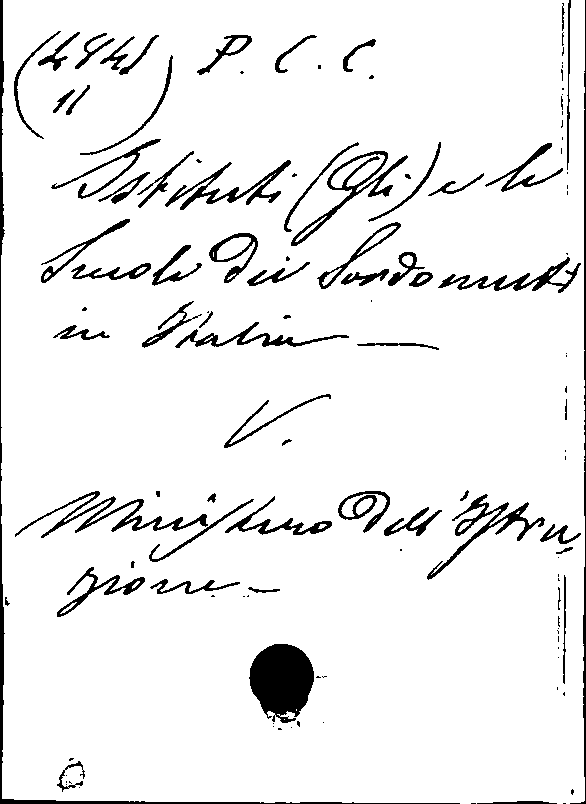 P. C. C.
11
Istituti (Gli) e le
Scuole dei Sordomuti
in Italia —
V.
Ministero dell'Istru-
zione —